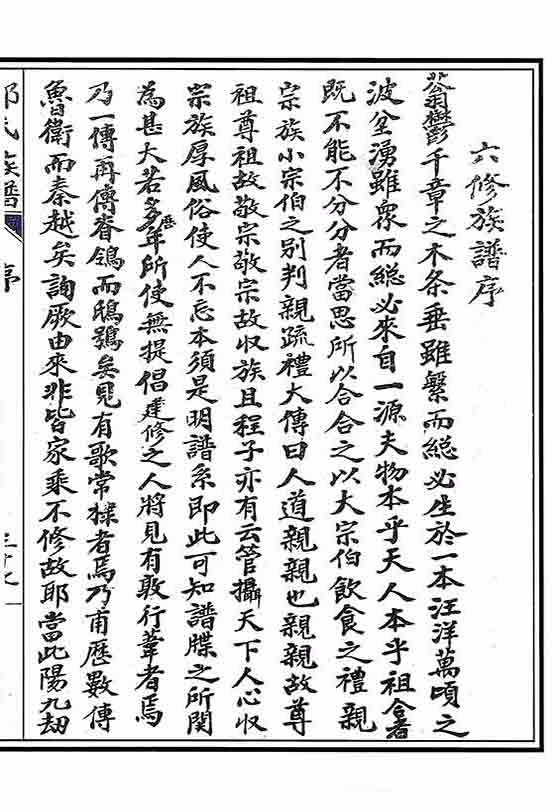 六修族譜序
蓊鬱千章之木条垂雖繁而総必生於一本汪洋萬頃之
波坌湧雖衆而総必來自一源夫物本乎天人本乎祖合者
既不能不分分者當思所以合合之以大宗伯飲食之禮親
宗族小宗伯之別判親疏禮大傳曰人道親親也親親故尊
祖尊祖故敬宗敬宗故収族且程子亦有云管攝天下人心収
宗族厚風俗使人不忘本須是明譜系即此可知譜牒之所関
為甚大若多歷年所使無提倡建修之人將見有敦行葦者焉
乃一傳再傳脊鴒而鴟鴞矣見有歌常棣者焉乃甫歷數傳
魯衛而秦越矣詢厥由來非皆家乘不修故耶當此陽九劫
氏族譜
序